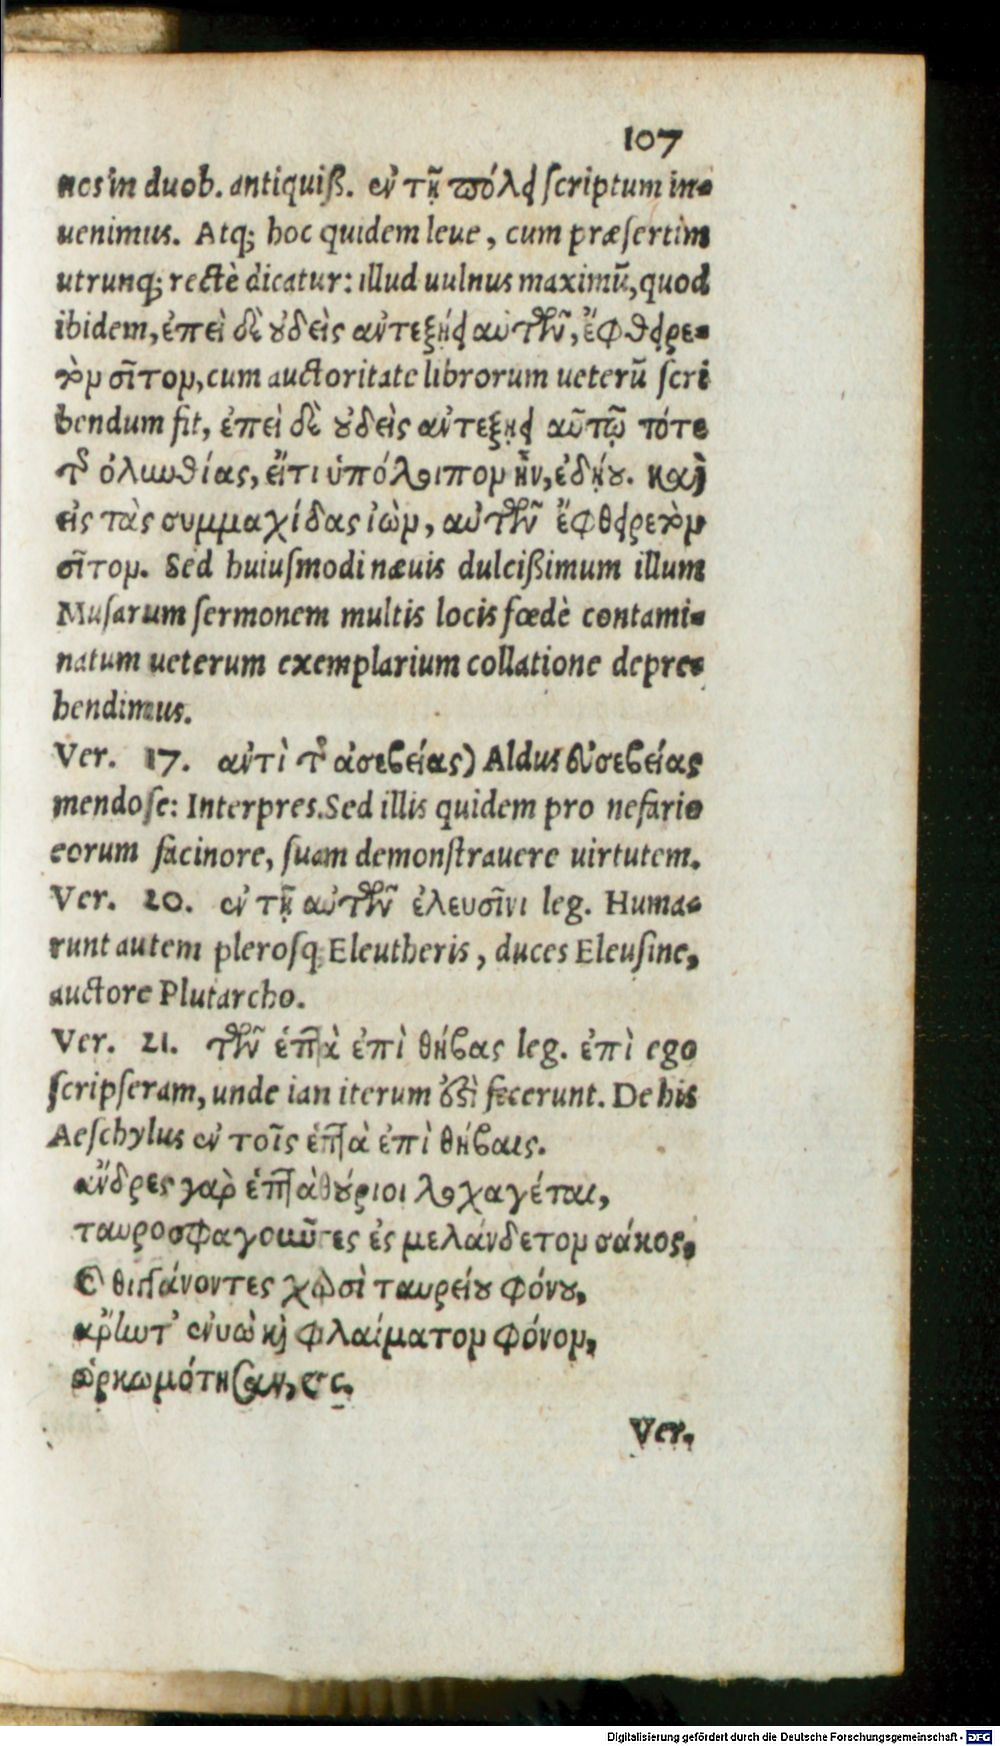 107
nos in duob. antiquiß. ἐν τῇ πόλει scriptum in-
uenimus. Atq; hoc quidem leue, cum præsertim
utrunq; rectè dicatur: illud uulnus maximũ, quod
ibidem, ἐπεὶ δὲ οὐδεὶς ἀντεξῄει αὐτῶν, ἔφθειρε-
τὸν σῖτον, cum auctoritate librorum ueterũ scri
bendum sit, ἐπεὶ δὲ οὐδεὶς ἀντεξῃει αὐτῷ τότε
τῆς ὀλυνθίας, εἴτι ὑπόλοιπον ἦν, ἐδῄου. καὶ
εἰς τὰς συμμαχίδας ἰὼν, αὐτῶν ἔφθειρε τὸν
σῖτον. Sed huiusmodi næuis dulcißimum illum
Musarum sermonem multis locis fœdè contami-
natum ueterum exemplarium collatione depre-
hendimus.
Ver. 17. ἀντὶ τῆς ἀσεβείας) Aldus εὐσεβείας
mendose: Interpres. Sed illis quidem pro nefario
eorum facinore, suam demonstrauere uirtutem.
Ver. 20. ἐν τῇ αὐτῶν ἐλευσῖνι leg. Huma-
runt autem plerosq; Eleutheris, duces Eleusine,
auctore Plutarcho.
Ver. 21. τῶν ἑπτὰ ἐπὶ θήβας leg. ἐπὶ ego
scripseram, unde ian iterum ὅτι fecerunt. De his
Aeschylus ἐν τοῖς ἑπτὰ ἐπὶ θήβαις.
ἄνδρες γὰρ ἑπτὰ θούριοι λοχαγέται,
ταυροσφαγοιῦτες ἐς μελάνδετον σάκος,
Θιγγάνοντες χερσὶ ταυρείου φόνου,
ἄρην τ' ἐνυὼ καὶ φιλαίματον φόνον,
ὡρκωμότησαν, &c.
Ver.
Digitalisierung gefördert durch die Deutsche Forschungsgemeinschaft - DFG